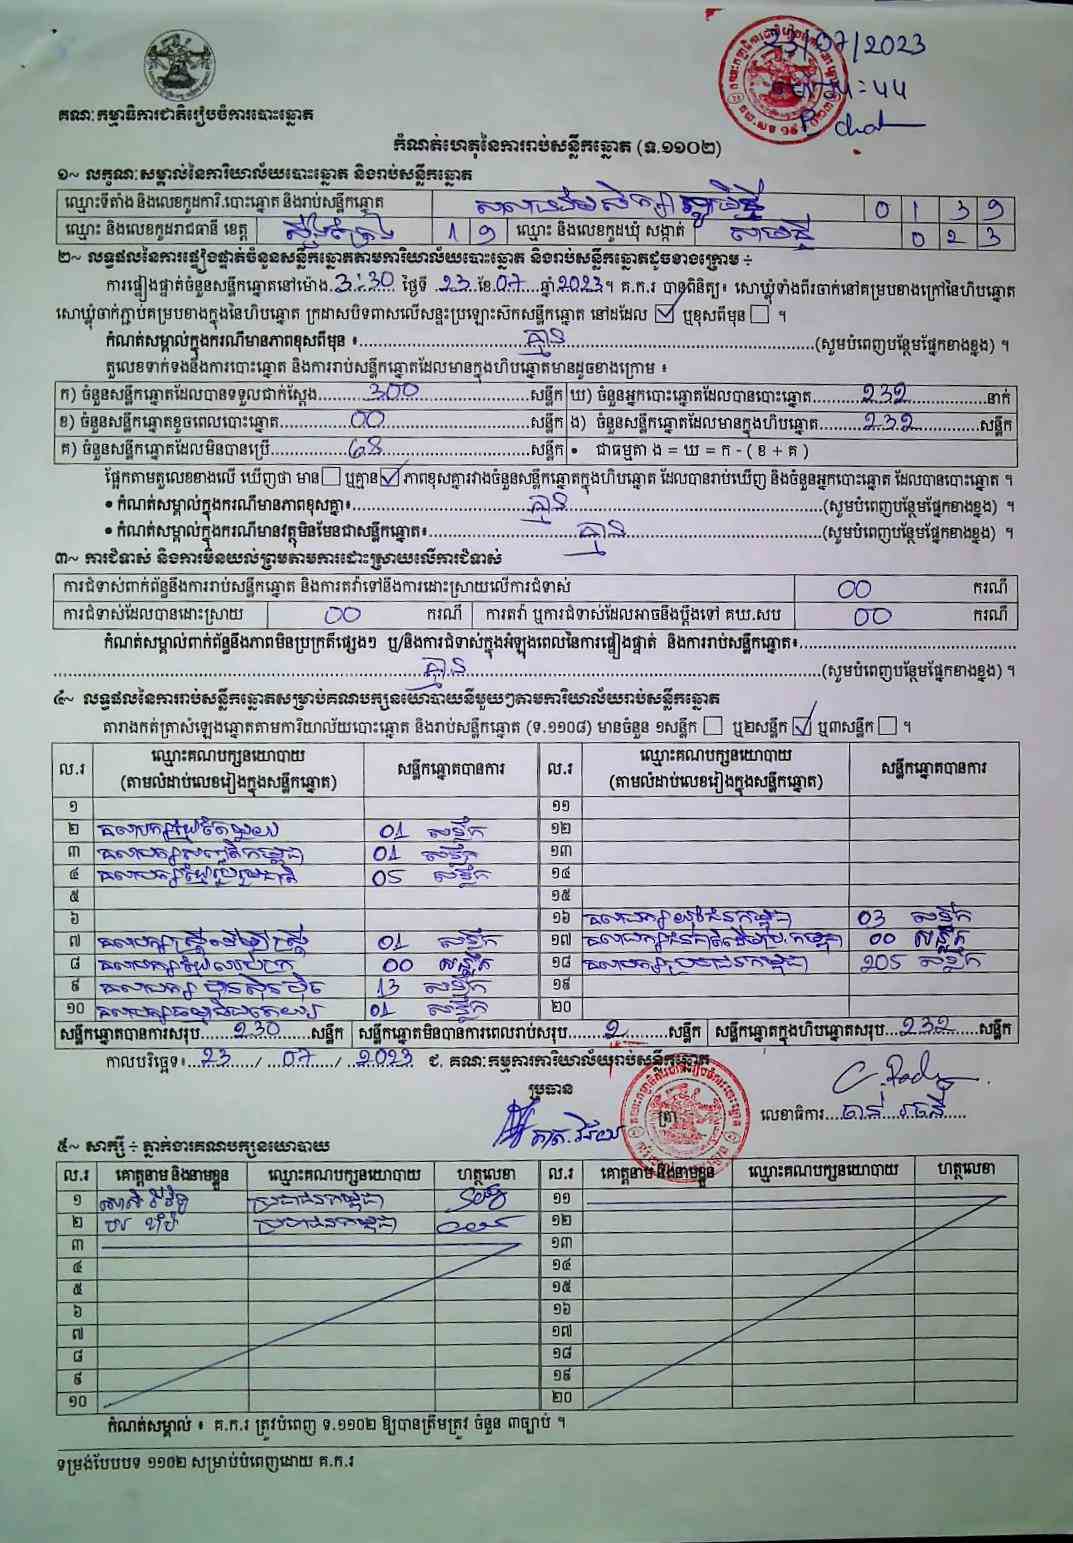 23/07/2023
គណៈកម្មាធិការជាតិរៀបចំការបោះឆ្នោត
កំណត់ហេតុនៃការរាប់សន្លឹកឆ្នោត (ទ.១១០២)
១~ លក្ខណៈសម្គាល់នៃការិយាល័យបោះឆ្នោត និងរាប់សន្លឹកឆ្នោត
ឈ្មោះទីតាំង និងលេខកូដការិ.បោះឆ្នោត និងរាប់សន្លឹកឆ្នោត 0 1 3 9
ឈ្មោះ និងលេខកូដរាជធានី ខេត្ត ស្ទឹងត្រែង 1 9 ឈ្មោះ និងលេខកូដឃុំ សង្កាត់ សាមគ្គី 0 2 3
២~ លទ្ធផលនៃការផ្ទៀងផ្ទាត់ចំនួនសន្លឹកឆ្នោតតាមការិយាល័យបោះឆ្នោត និងរាប់សន្លឹកឆ្នោតដូចខាងក្រោម ÷
ការផ្ទៀងផ្ទាត់ចំនួនសន្លឹកឆ្នោតនៅម៉ោង 3:30 ថ្ងៃទី 23 ខែ 07 ឆ្នាំ 2023។ គ.ក.រ បានពិនិត្យ៖ សោឃ្លុំទាំងពីរចាក់នៅគម្របខាងក្រៅនៃហិបឆ្នោត
សោឃ្លុំចាក់ភ្ជាប់គម្របខាងក្នុងនៃហិបឆ្នោត ក្រដាសបិទពាសលើសន្ទះប្រឡោះស៊កសន្លឹកឆ្នោត នៅដដែល ☑ ឬខុសពីមុន ☐ ។
កំណត់សម្គាល់ក្នុងករណីមានភាពខុសពីមុន ៖ គ្មាន (សូមបំពេញបន្ថែមផ្នែកខាងខ្នង) ។
តួលេខទាក់ទងនឹងការបោះឆ្នោត និងការរាប់សន្លឹកឆ្នោតដែលមានក្នុងហិបឆ្នោតមានដូចខាងក្រោម ៖
ក) ចំនួនសន្លឹកឆ្នោតដែលបានទទួលជាក់ស្តែង 300 សន្លឹក ឃ) ចំនួនអ្នកបោះឆ្នោតដែលបានបោះឆ្នោត 232 នាក់
ខ) ចំនួនសន្លឹកឆ្នោតខូចពេលបោះឆ្នោត 00 សន្លឹក ង) ចំនួនសន្លឹកឆ្នោតដែលមានក្នុងហិបឆ្នោត 232 សន្លឹក
គ) ចំនួនសន្លឹកឆ្នោតដែលមិនបានប្រើ 68 សន្លឹក • ជាធម្មតា ង = ឃ = ក - ( ខ + គ )
ផ្អែកតាមតួលេខខាងលើ ឃើញថា មាន ☐ ឬគ្មាន ☑ ភាពខុសគ្នារវាងចំនួនសន្លឹកឆ្នោតក្នុងហិបឆ្នោត ដែលបានរាប់ឃើញ និងចំនួនអ្នកបោះឆ្នោត ដែលបានបោះឆ្នោត ។
• កំណត់សម្គាល់ក្នុងករណីមានភាពខុសគ្នា៖ គ្មាន (សូមបំពេញបន្ថែមផ្នែកខាងខ្នង) ។
• កំណត់សម្គាល់ក្នុងករណីមានវត្ថុមិនមែនជាសន្លឹកឆ្នោត៖ គ្មាន (សូមបំពេញបន្ថែមផ្នែកខាងខ្នង) ។
៣~ ការជំទាស់ និងការមិនយល់ព្រមតាមការដោះស្រាយលើការជំទាស់
ការជំទាស់ពាក់ព័ន្ធនឹងការរាប់សន្លឹកឆ្នោត និងការតវ៉ាទៅនឹងការដោះស្រាយលើការជំទាស់ 00 ករណី
ការជំទាស់ដែលបានដោះស្រាយ 00 ករណី ការតវ៉ា ឬការជំទាស់ដែលអាចនឹងប្តឹងទៅ គឃ.សប 00 ករណី
កំណត់សម្គាល់ពាក់ព័ន្ធនឹងភាពមិនប្រក្រតីផ្សេងៗ ឬ/និងការជំទាស់ក្នុងអំឡុងពេលនៃការផ្ទៀងផ្ទាត់ និងការរាប់សន្លឹកឆ្នោត៖
គ្មាន (សូមបំពេញបន្ថែមផ្នែកខាងខ្នង) ។
៤~ លទ្ធផលនៃការរាប់សន្លឹកឆ្នោតសម្រាប់គណបក្សនយោបាយនីមួយៗតាមការិយាល័យរាប់សន្លឹកឆ្នោត
តារាងកត់ត្រាសំឡេងឆ្នោតតាមការិយាល័យបោះឆ្នោត និងរាប់សន្លឹកឆ្នោត (ទ.១១០៨) មានចំនួន ១សន្លឹក ☐ ឬ២សន្លឹក ☑ ឬ៣សន្លឹក ☐ ។
ល.រ ឈ្មោះគណបក្សនយោបាយ (តាមលំដាប់លេខរៀងក្នុងសន្លឹកឆ្នោត) សន្លឹកឆ្នោតបានការ ល.រ ឈ្មោះគណបក្សនយោបាយ (តាមលំដាប់លេខរៀងក្នុងសន្លឹកឆ្នោត) សន្លឹកឆ្នោតបានការ
១ ១១
២ គណបក្សខ្មែរតែមួយ 01 សន្លឹក ១២
៣ 01 សន្លឹក ១៣
៤ គណបក្សខ្មែររួបរួមជាតិ 05 សន្លឹក ១៤
៥ ១៥
៦ ១៦ គណបក្សយុវជនកម្ពុជា 03 សន្លឹក
៧ គណបក្សស្ត្រីដើម្បីស្ត្រី 01 សន្លឹក ១៧ 00 សន្លឹក
៨ 00 សន្លឹក ១៨ គណបក្សប្រជាជនកម្ពុជា 205 សន្លឹក
៩ គណបក្ស ហ្វ៊ុនស៊ិនប៉ិច 13 សន្លឹក ១៩
១០ គណបក្សធម្មាធិបតេយ្យ 01 សន្លឹក ២០
សន្លឹកឆ្នោតបានការសរុប 230 សន្លឹក សន្លឹកឆ្នោតមិនបានការពេលរាប់សរុប 2 សន្លឹក សន្លឹកឆ្នោតក្នុងហិបឆ្នោតសរុប 232 សន្លឹក
កាលបរិច្ឆេទ៖ 23 / 07 / 2023 ជ. គណៈកម្មការការិយាល័យរាប់សន្លឹកឆ្នោត
ប្រធាន
លេខាធិការ
៥~ សាក្សី ÷ ភ្នាក់ងារគណបក្សនយោបាយ
ល.រ គោត្តនាម និងនាមខ្លួន ឈ្មោះគណបក្សនយោបាយ ហត្ថលេខា ល.រ គោត្តនាម និងនាមខ្លួន ឈ្មោះគណបក្សនយោបាយ ហត្ថលេខា
១ ប្រជាជនកម្ពុជា ១១
២ ប្រជាជនកម្ពុជា ១២
៣ ១៣
៤ ១៤
៥ ១៥
៦ ១៦
៧ ១៧
៨ ១៨
៩ ១៩
១០ ២០
កំណត់សម្គាល់ ៖ គ.ក.រ ត្រូវបំពេញ ទ.១១០២ ឱ្យបានត្រឹមត្រូវ ចំនួន ៣ច្បាប់ ។
ទម្រង់បែបបទ ១១០២ សម្រាប់បំពេញដោយ គ.ក.រ